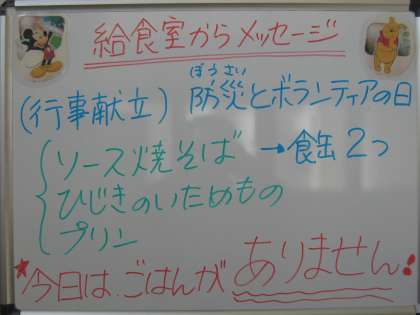 給食室からメッセージ
ぼうさい
(行事献立) 防災とボランティアの日
ソース焼そば → 食缶2つ
ひじきのいためもの
プリン
★今日は、ごはんがありません!